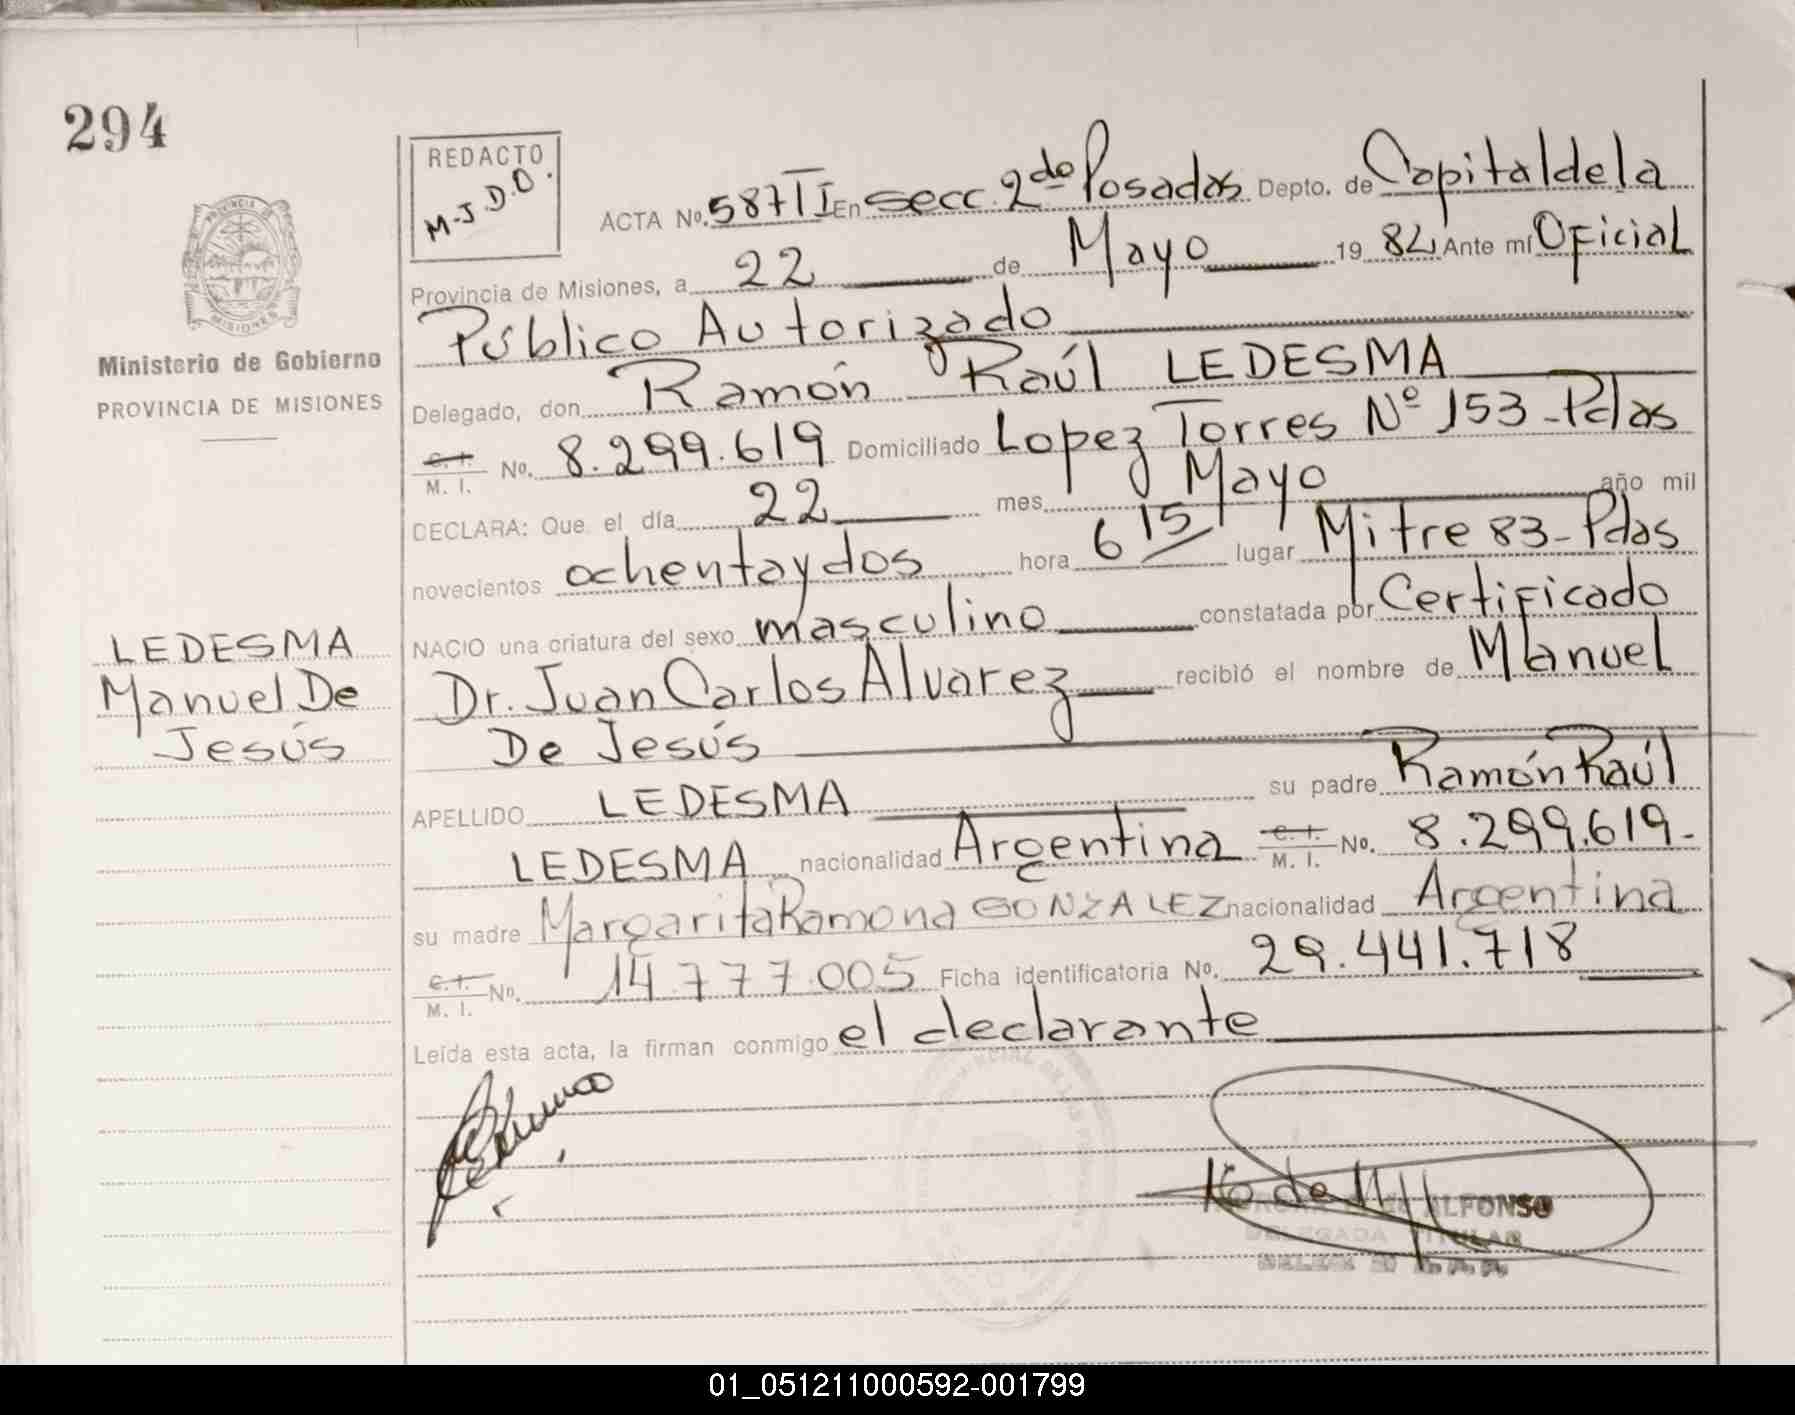 294
REDACTO
M-J.D.D.
ACTA No. 587 TI En secc. 2do Posadas Depto. de Capital de la
Provincia de Misiones, a 22 de Mayo 1982 Ante mi Oficial
Público Autorizado
Ministerio de Gobierno
PROVINCIA DE MISIONES
Delegado, don Ramón Raúl LEDESMA
C. I. M. I. No. 8.299.619 Domiciliado Lopez Torres Nº 153-Pdas
DECLARA: Que el día 22 mes Mayo año mil
novecientos ochentaydos hora 6 15 lugar Mitre 83-Pdas
NACIO una criatura del sexo masculino constatada por Certificado
LEDESMA
Manuel De
Jesús
Dr. Juan Carlos Alvarez recibió el nombre de Manuel
De Jesús
APELLIDO LEDESMA su padre Ramón Raúl
LEDESMA nacionalidad Argentina C. I. M. I. No. 8.299.619-
su madre Margarita Ramona GONZALEZ nacionalidad Argentina
C. I. M. I. No. 14.777.005 Ficha identificatoria No. 29.441.718
Leída esta acta, la firman conmigo el declarante
ALFONSO
DELEGADA TITULAR
01_051211000592-001799